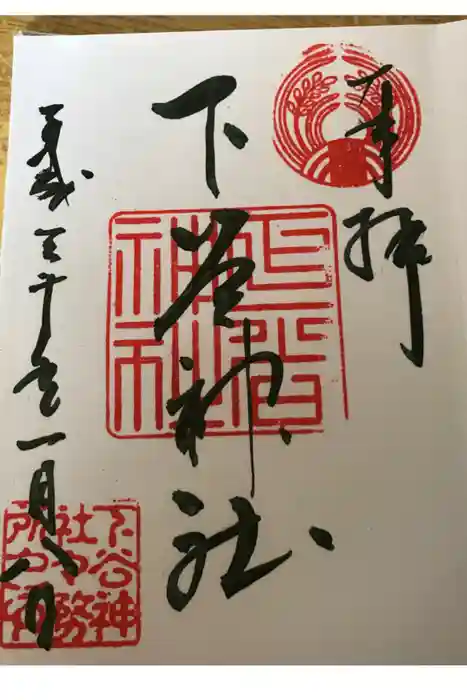 奉拝
下谷神社
平成三十年一月八日
下谷神
社社務
所之印